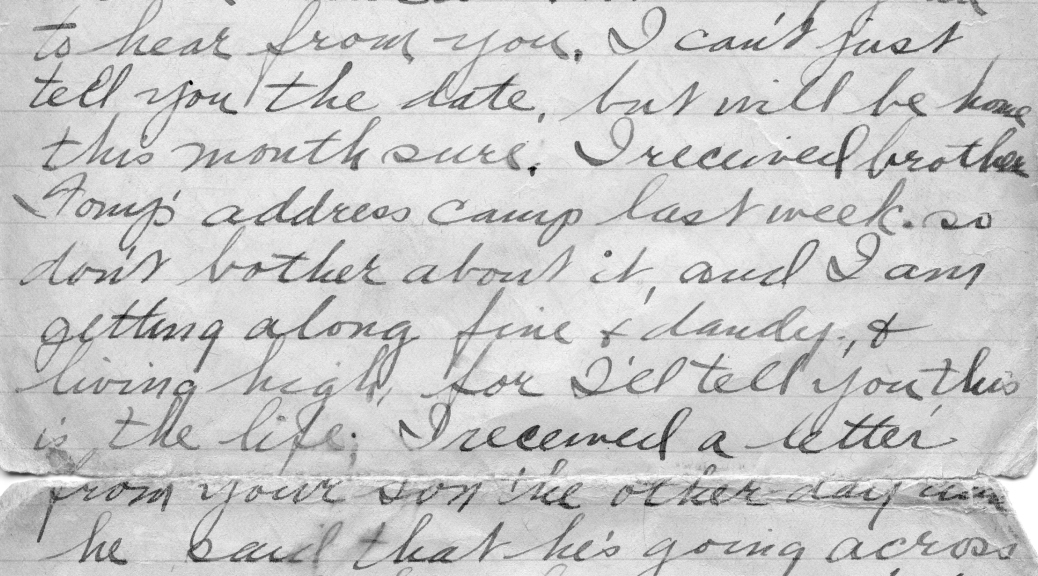 to hear from you. I can't just
tell you the date, but will be home
this month sure. I received brother
address camp last week. so
don't bother about it, and I am
getting along fine & dandy, &
living high, for I'll tell you this
is the life. I received a letter
from your son the other day
he said that he's going across